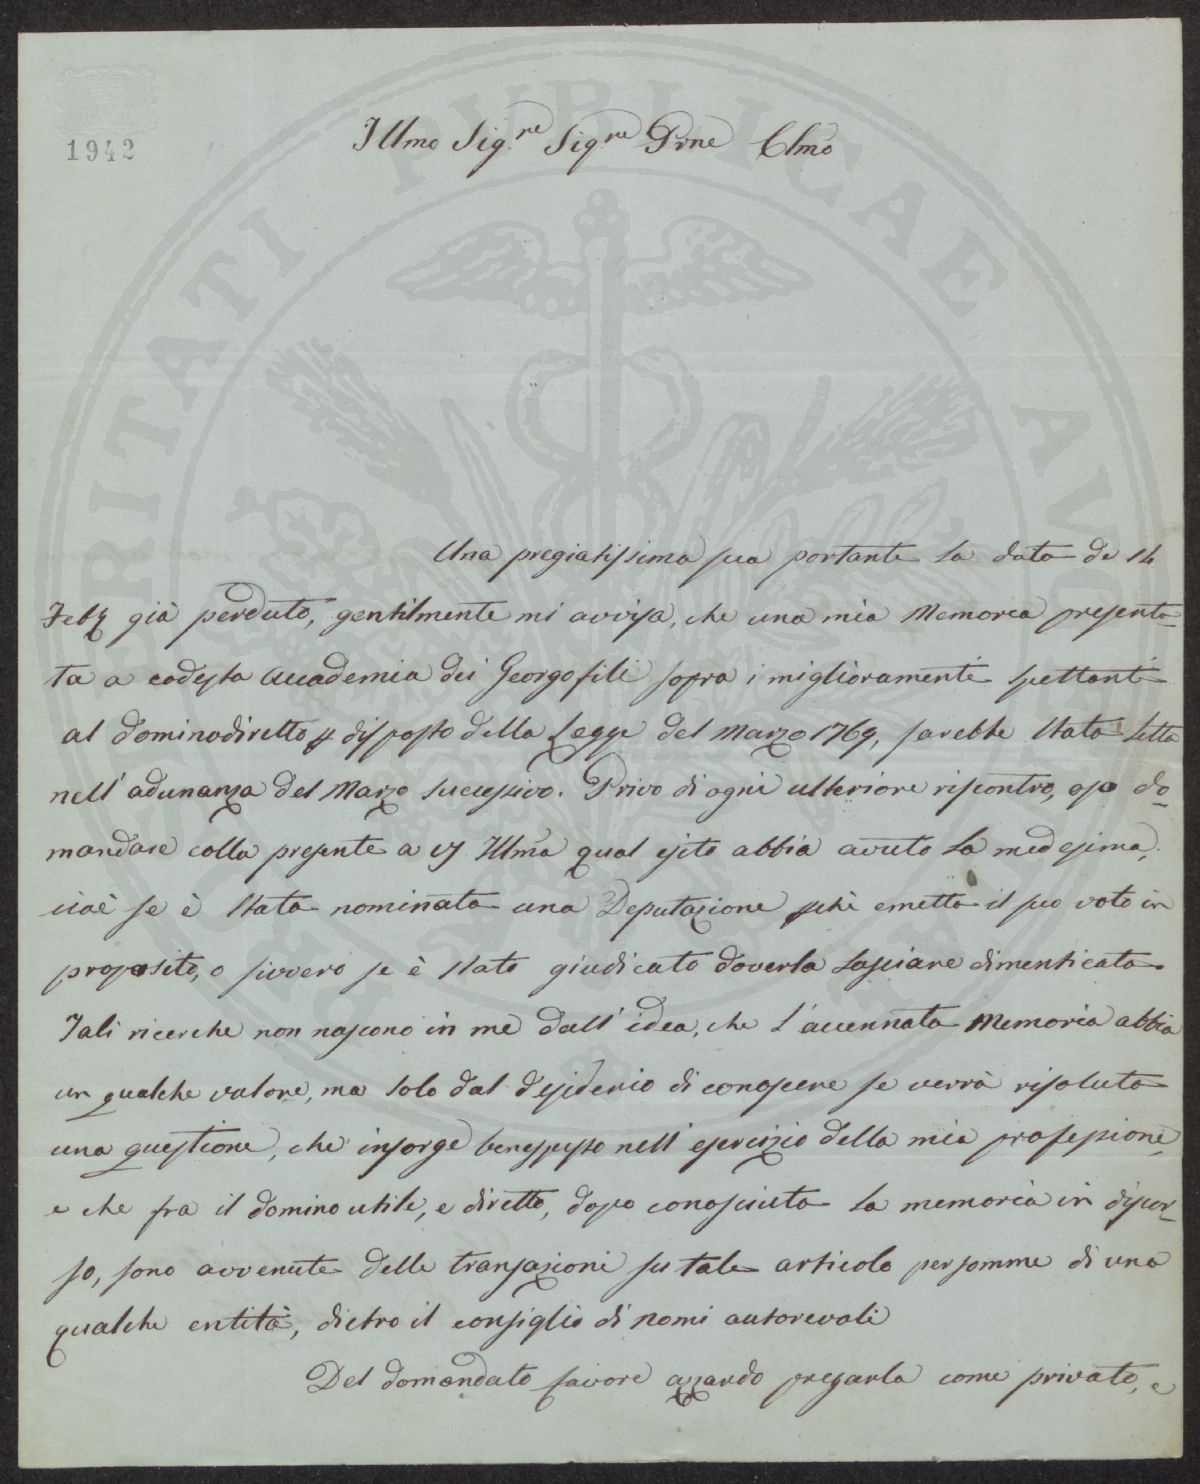 1942
Illmo Sig.re Sig.re Prne Clmo
Una pregiatissima sua portante la data de 14
Febb già perduto, gentilmente mi avvisa, che una mia Memoria presenta-
ta a codesta Accademia dei Georgofili sopra i miglioramenti spettanti
al dominodiretto p disposto della Legge del Marzo 1769, sarebbe stata letta
nell'adunanza del Marzo successivo. Privo di ogni ulteriore riscontro, oso do-
mandare colla presente a VS Illma qual esito abbia avuto la medesima,
cioè se è stata nominata una Deputazione pchè emetta il suo voto in
proposito, o sivvero se è stato giudicato doverla lasciare dimenticata.
Tali ricerche non nascono in me dall'idea, che l'accennata Memoria abbia
un qualche valore, ma solo dal desiderio di conoscere se verrà risoluta
una questione, che insorge benespesso nell'esercizio della mia professione,
e che fra il domino utile, e diretto, dopo conosciuta la memoria in discor-
so, sono avvenute delle transazioni su tale articolo per somme di una
qualche entità, dietro il consiglio di nomi autorevoli
Del domandato favore azzardo pregarla come privato, e
VBLICAE